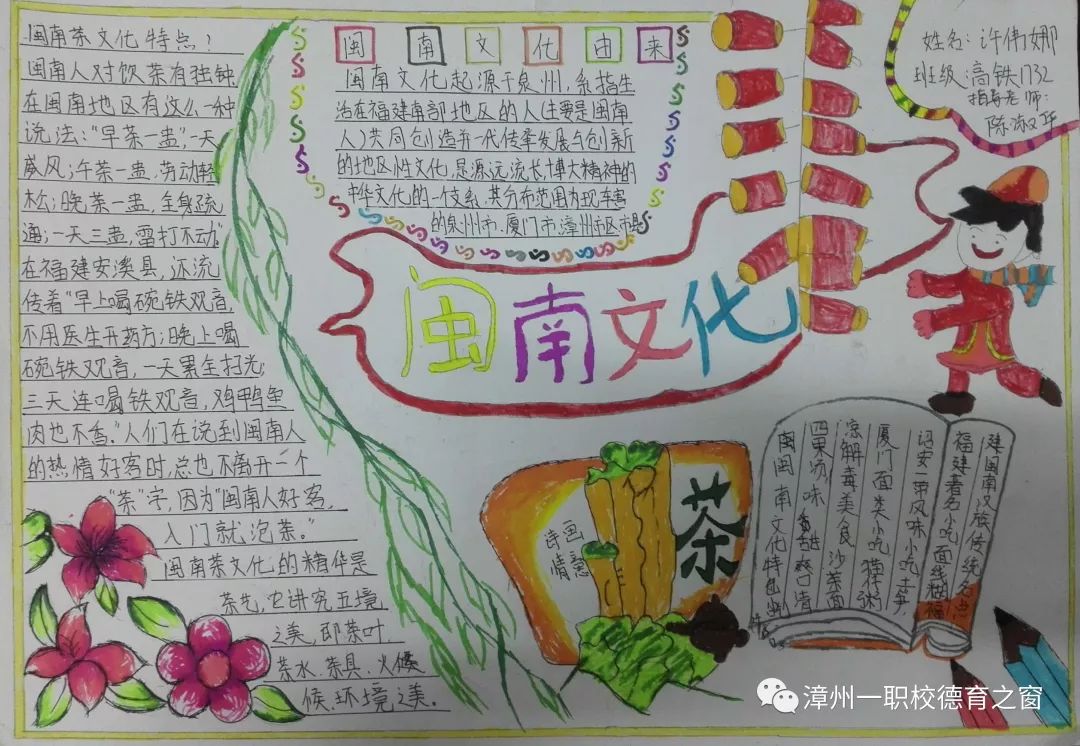 闽南茶文化特点！
闽南人对饮茶有独钟
在闽南地区有这么一种
说法："早茶一盅",一天
威风;午茶一盅,劳动轻
松;晚茶一盅,全身疏
通;一天三盅,雷打不动"
在福建安溪县,还流
传着"早上喝碗铁观音,
不用医生开药方;晚上喝
碗铁观音,一天累全扫光;
三天连喝铁观音,鸡鸭鱼
肉也不香."人们在说到闽南人
的热情好客时,总也不离开一个
"茶"字,因为"闽南人好客,
入门就泡茶."
闽南茶文化的精华是
茶艺,它讲究五境
之美,即茶叶
茶水.茶具.火候
候.环境之美.
闽南文化由来
闽南文化起源于泉州,系指生
活在福建南部地区的人(主要是闽南
人)共同创造并一代传承发展与创新
的地区性文化,是源远流长,博大精神的
中华文化的一支系.其分布范围为现
的泉州市.厦门市.漳州市区市县
姓名:许伟娜
班级:高铁1732
指导老师:
陈淑华
闽南文化
茶
诗情
画意
建闽南汉族传统名点
福建著名小吃面线糊福
诏安一带风味小吃土笋
厦门面类小吃猫仔粥
凉解毒美食沙茶面
四果汤,味甜爽口清
闽南文化特色
漳州一职校德育之窗